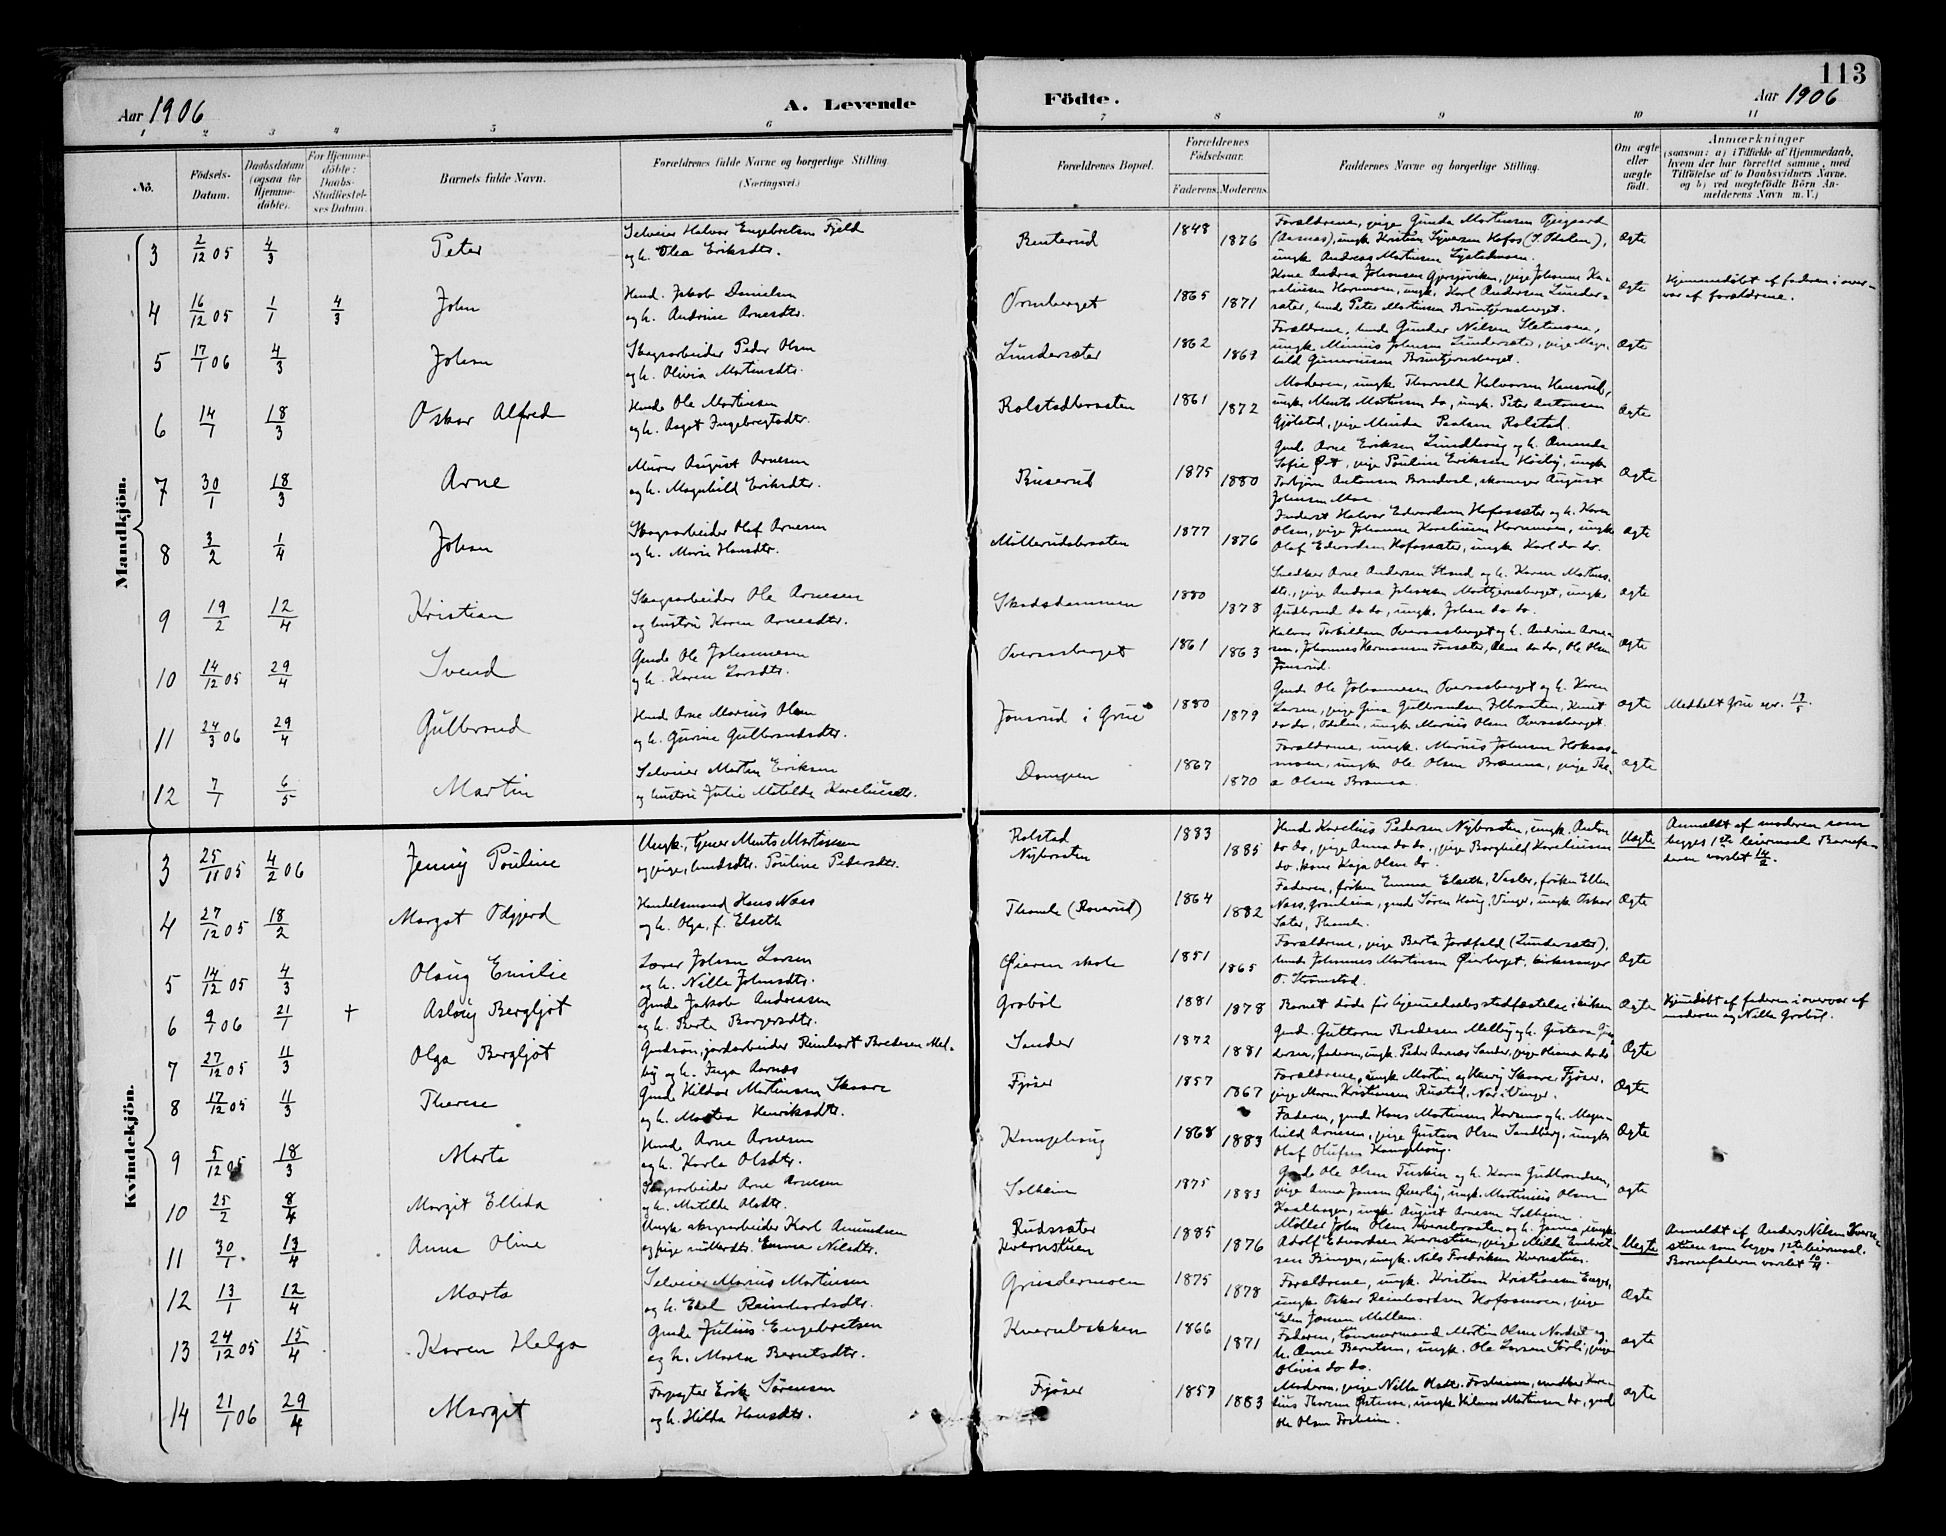 113
Aar 1906 A. Levende Födte. Aar 1906
1 2 3 4 5 6 7 8 9 10 11
No.
Födsels-Datum.
Daabsdatum (ogsaa for Hjemme-döbte).
For Hjemme-döbte: Daabs-Stadfæstel-ses Datum.
Barnets fulde Navn.
Forældrenes fulde Navne og borgerlige Stilling. (Næringsvei.)
Forældrenes Bopæl.
Forældrenes Födselsaar.
Faderens. Moderens.
Faddernes Navne og borgerlige Stilling.
Om ægte eller uægte födt.
Anmærkninger
(saasom: a) i Tilfælde af Hjemmedaab, hvem der har forrettet samme, med Tilföielse af to Daabsvidners Navne, og b) ved uægtefödte Börn An-melderens Navn m. V.)
Mandkjön.
3 2/12 05 4/3 Peter Selveier Halvor Engebretsen Fjeld
og h. Olea Eriksdtr. Benterud 1848 1876 Forældrene, pige Gunda Martinsen
ungk. Andreas Martinsen Ægte
4 16/12 05 1/1 4/3 John Husm. Jakob Danielsen
og h. Andrine Arnesdtr. Ormberget 1865 1871 Kone Andrea Johansen Gjersjøviken, pige Johanne Ka-
ungk. Karl Andersen Linder-
sæter, husm. Peter Martinsen Ægte Hjemmedøbt af faderen i over-
vær af forældrene.
5 17/1 06 4/3 Johan Skogsarbeider Peder Olsen
og h. Olivia Martinsdtr. Lundersæter 1862 1869 Forældrene, husm. Gunder Nilsen
ungk. Johnsen Lundersæter, pige Mag-
hild Gunerusen Ægte
6 14/1 18/3 Oskar Alfred Husm. Ole Martinsen
og h. Aagot Ingebregtsdtr. Rolstadbraaten 1861 1872 Moderen, ungk. Thorvald Halvorsen
ungk. Ments Martinsen do, ungk. Peter Antonsen
Gjølstad, pige Minda Paulsen Rolstad. Ægte
7 30/1 18/3 Arne Murer August Arnesen
og h. Magnhild Eriksdtr. Buserud 1875 1880 Gmd. Arne Eriksen Lundhaug og h. Amunda
Sofie pige Pauline Eriksen ungk.
Torbjørn Antonsen Brandval, skomager August
Johnsen Moe Ægte
8 3/2 1/4 Johan Skogsarbeider Olaf Arnesen
og h. Marie Hansdtr. Møllerudsbraaten 1877 1876 Inderst Halvor Edvardsen Hofossæter og h. Karen
Olsen, pige Johanne Kareliusen ungk.
Olaf Edvardsen Hofossæter, ungk. Karl do do. Ægte
9 19/2 12/4 Kristian Skogsarbeider Ole Arnesen
og hustru Karen Arnesdtr. Skadsdammen 1880 1878 Snedker Arne Andersen Strand og h. Karen Martins-
dtr., pige Andrea Johansen ungk.
Gudbrand do do, ungk. Johan do do. Ægte
10 14/12 05 29/4 Svend Gmd. Ole Johannesen
og h. Karen Larsdtr. Overaasberget 1861 1863 Halvor Torkildsen Overaasberget og h. Andrine Arne-
sen, Johannes Hermansen do do, Ole Olsen
Jonsrud. Ægte
11 24/3 06 29/4 Gulbrand Husm. Arne Marius Olsen
og h. Gurine Gulbrandsdtr. Jonsrud i Grue 1880 1879 Gmd. Ole Johannesen Overaasberget og h. Karen
Larsen, pige Gina Gulbrandsen
ungk. Marius Olsen Overaasberget. Ægte Meddelt Grue
12 7/1 6/5 Martin Selveier Martin Eriksen
og hustru Julie Matilde Kareliusdtr. Dampen 1867 1870 Forældrene, ungk. Marius Johnsen
ungk. Ole Olsen Brænna, pige The-
a Olsen Brænna. Ægte
Kvindekjön.
3 25/11 05 4/2 06 Jenny Pouline Ungk., tjener Ments Martinsen
og pige, husmdtr. Pouline Pedersdtr. Rolstad
Nybraaten 1883 1885 Husm. Karelius Pedersen Nybraaten, ungk. Anton
do do, pige Anna do do, pige Borghild Kareliusen
do, kone Kaja Olsen do. Uægte Anmeldt af moderen som
begges 1ste leiermaal. Barnefa-
deren varslet 14/2.
4 27/12 05 18/2 Margot Odgjerd Handelsmand Hans Næss
og h. Olga, f. Elseth Thomle (Roverud) 1864 1882 Faderen, frøken Emma Elseth, Vesler, frøken Ellen
Næss, gmd. Søren Haug, Vinger, ungk. Oskar
Sæter, Thomle. Ægte
5 14/12 05 4/3 Olaug Emilie Lærer Johan Larsen
og h. Nilla Johnsdtr. Øieren skole 1851 1865 Forældrene, pige Berta Jordfald (Lundersæter),
husm. Johannes Martinsen Øierberget, kirkesanger
O. Strømstad. Ægte
6 9/1 06 21/1 † Aslaug Bergljot Gmd. Jakob Andreassen
og h. Berta Borgersdtr. Grobøl 1881 1878 Barnet døde før hjemmedaabsstadfæstelse i kirken Ægte Hjemdøbt af faderen i overvær af
moderen og Nilla Grobøl.
7 27/12 05 11/3 Olga Bergljot Gmdsøn, jordarbeider Reinhart Bredesen Mel-
by og h. Inga Aarnæs Sander 1872 1881 Gmd. Guttorm Bredesen Melby og h. Gustava
faderen, ungk. Peder Aarnæs Sander, pige Oliana do do Ægte
8 17/12 05 11/3 Therese Gmd. Hildor Martinsen Skaare
og h. Martea Henriksdtr. Fjøser 1857 1867 Forældrene, ungk. Martin og Henrij Skaare Fjøser,
pige Maren Kristiansen Rustad, Nor i Vinger. Ægte
9 5/12 05 18/3 Marta Husm. Arne Arnesen
og h. Karla Olsdtr. Kampehaug 1868 1883 Faderen, gmd. Hans Martinsen og h. Magn-
hild Arnesen, pige Gustava Olsen Sandberg, ungk.
Olaf Olufsen Kampehaug. Ægte
10 25/2 8/4 Margit Ellida Skogsarbeider Arne Arnesen
og h. Matilde Olsdtr. Solheim 1875 1883 Gmd. Ole Olsen Tuskin og h. Karen Gudbrandsen,
pige Anna Jansen Øverby, ungk. Martinius Olsen
ungk. August Arnesen Solheim. Ægte
11 30/1 13/4 Anna Oline Ungk. skogsarbeider Karl Amundsen
og pige møllerdt. Emma Nilsdtr. Rudssæter
Kvernstuen 1885 1876 Møller John Olsen Kvernbraaten og h. Janna, ungk.
Adolf Edvardsen Kvernstuen, pige Milla Embret-
sen Bunger, ungk. Nils Fredriksen Kvernstuen. Uægte Anmeldt af Anders Nilsen Kvern-
stuen som begges 1ste leiermaal.
Barnefaderen varslet 10/4.
12 13/1 12/4 Marta Selveier Marius Martinsen
og h. Edel Reinhardsdtr. Grindermoen 1875 1878 Forældrene, ungk. Kristian Kristiansen Enger,
ungk. Oskar Reinhardsen Hofosmoen, pige
Elen Jansen Mellem. Ægte
13 24/12 05 15/4 Karen Helga Gmd. Julius Engebretsen
og h. Maren Berntsdtr. Kvernbakken 1866 1871 Faderen, tømmermand Martin Olsen og
h. Anne Berntsen, ungk. Ole Larsen Sørli, pige
Olivia do do. Ægte
14 21/1 06 29/4 Margit Forpagter Erik Sørensen
og h. Hilda Hansdtr. Fjøser 1857 1883 Moderen, pige Nilla Olsdtr. Fosheim, snedker Kare-
lius Thoresen ungk. Hilmar Martinsen do, gmd.
Ole Olsen Fosheim. Ægte